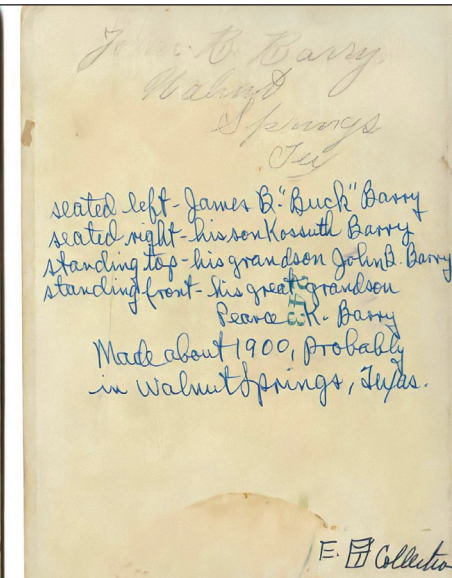 John B. Barry
Walnut
Springs
Tex
seated left - James B. "Buck" Barry
seated right - his son Kossuth Barry
standing top - his grandson John B. Barry
standing front - his great grandson
Pearce K. Barry
Made about 1900, probably
in Walnut Springs, Texas.
E. Collectio